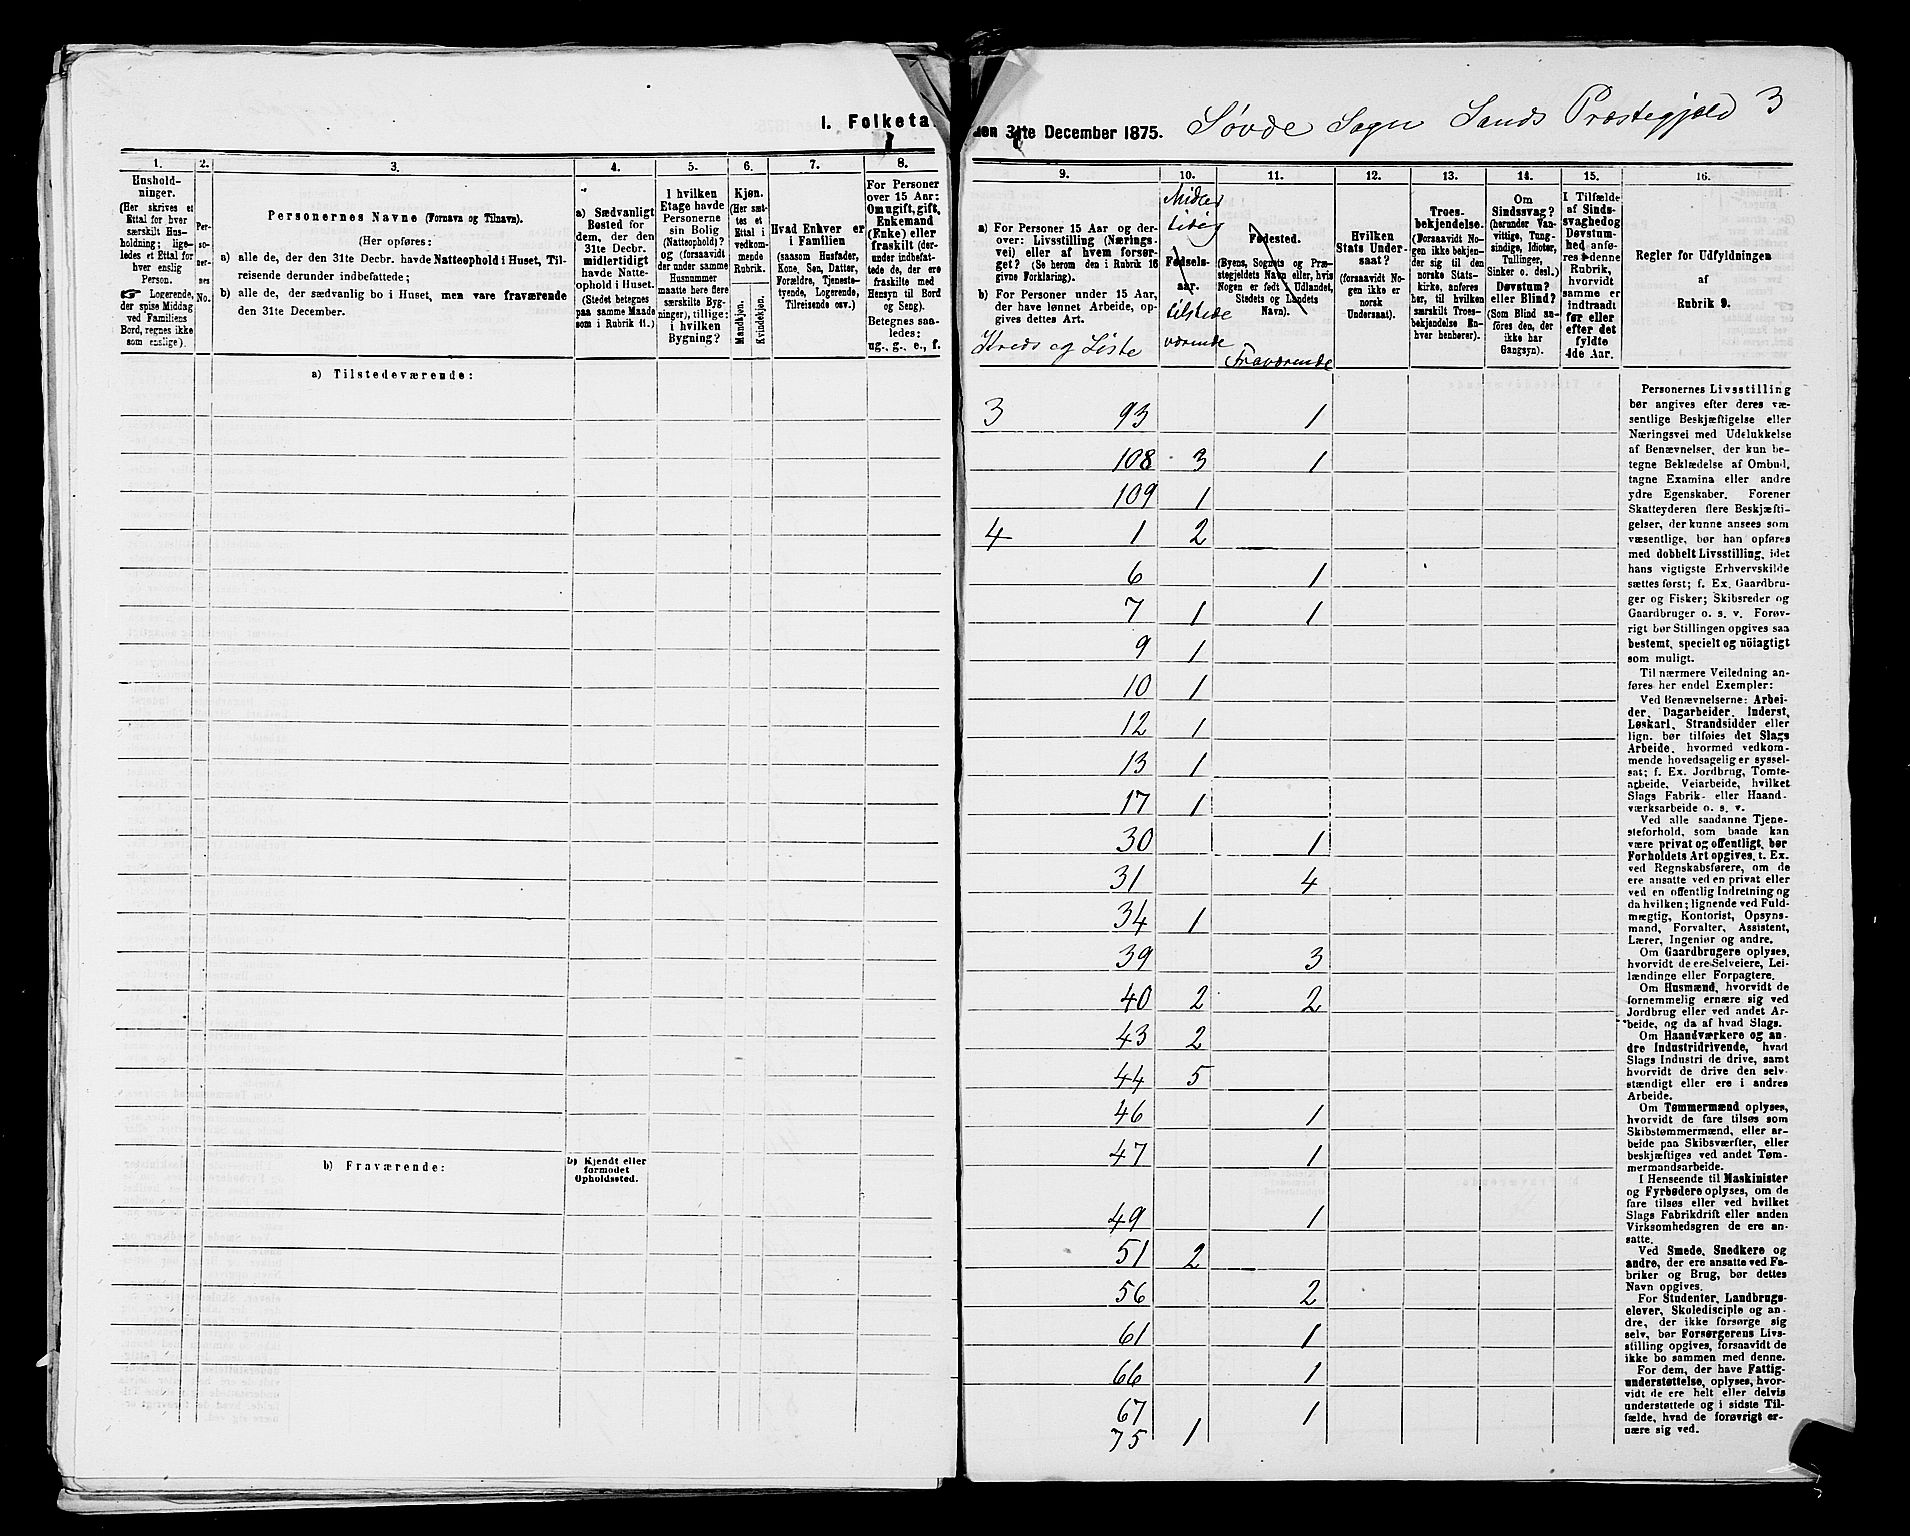 I. Folketa
den 31te December 1875. Søvde Sogn Sands Præstegjeld 3
1.
2.
3.
4.
5.
6.
7.
8.
Hushold-
ninger.
(Her skrives et
Ettal for hver
særskilt Hus-
holdning; lige-
ledes et Ettal for
hver enslig
Person.
Logerende,
der spise Middag
ved Familiens
Bord, regnes ikke
som enslige).
Per-
so-
ner-
nes
No.
Personernes Navne (Fornavn og Tilnavn).
(Her opføres:
a) alle de, der den 31te Decbr. havde Natteophold i Huset, Til-
reisende derunder indbefattede;
b) alle de, der sædvanlig bo i Huset, men vare fraværende
den 31te December.
a) Sædvanligt
Bosted for
dem, der den
31te Decbr.
midlertidigt
havde Natte-
ophold i Huset.
(Stedet betegnes
paa samme Maade
som i Rubrik 11.)
I hvilken
Etage havde
Personerne
sin Bolig
(Natteophold)?
og (forsaavidt
der under samme
Husnummer
maatte være flere
særskilte Byg-
ninger), tillige:
i hvilken
Bygning?
Kjøn.
(Her sæt-
tes et
Ettal i
vedkom-
mende
Rubrik.
Mandkjøn.
Kvindekjøn.
Hvad Enhver er
i Familien
(saasom Husfader,
Kone, Søn, Datter,
Forældre, Tjeneste-
tyende, Logerende,
Tilreisende osv.).
For Personer
over 15 Aar:
Om ugift, gift,
Enkemand
(Enke) eller
fraskilt (der-
under indbefat-
tede de, der ere
fraskilte med
Hensyn til Bord
og Seng).
Betegnes saa-
ledes:
ug., g., e., f.
a) Tilstedeværende:
b) Fraværende:
b) Kjendt eller
formodet
Opholdssted.
9.
10.
11.
12.
13.
14.
15.
16.
a) For Personer 15 Aar og der-
over: Livsstilling (Nærings-
vei) eller af hvem forsør-
get? (Se herom den i Rubrik 16
givne Forklaring).
b) For Personer under 15 Aar,
der have lønnet Arbeide, op-
gives dettes Art.
Kreds og Liste
Midler
tidig
Fødsels-
aar.
tilstede
værende
Fødested.
(Byens, Sognets og Præ-
stegjeldets Navn eller, hvis
Nogen er født i Udlandet,
Stedets og Landets
Navn).
Fraværende
Hvilken
Stats Under-
saat?
(forsaavidt No-
gen ikke er
norsk
Undersaat).
Troes-
bekjendelse.
(Forsaavidt No-
gen ikke bekjen-
der sig til den
norske Stats-
kirke, anføres
her, til hvilken
særskilt Troes-
bekjendelse En-
hver henhører).
Om
Sindssvag?
(herunder Van-
vittige, Tung-
sindige, Idioter,
Tullinger,
Sinker o. desl.)
Døvstum?
eller Blind?
(Som Blind an-
føres den, der
ikke har
Gangsyn).
I Tilfælde
af Sinds-
svaghed og
Døvstum-
hed anfø-
res i denne
Rubrik,
hvorvidt
samme er
indtraadt
før eller
efter det
fyldte
4de Aar.
Regler for Udfyldningen
af
Rubrik 9.
3 93 1
108 3 1
109 1
4 1 2
6 1
7 1 1
9 1
10 1
12 1
13 1
17 1
30 1
31 4
34 1
39 3
40 2 2
43 2
44 5
46 1
47 1
49 1
51 2
56 2
61 1
66 1
67 1
75 1
Personernes Livsstilling
bør angives efter deres væ-
sentlige Beskjæftigelse eller
Næringsvei med Udelukkelse
af Benævnelser, der kun be-
tegne Beklædelse af Ombud,
tagne Examina eller andre
ydre Egenskaber. Forener
Skatteyderen flere Beskjæfti-
gelser, der kunne ansees som
væsentlige, bør han opføres
med dobbelt Livsstilling, idet
hans vigtigste Erhvervskilde
sættes først; f. Ex. Gaardbru-
ger og Fisker; Skibsreder og
Gaardbruger o. s. v. Forøv-
rigt bør Stillingen opgives saa
bestemt, specielt og nöiagtigt
som muligt.
Til nærmere Veiledning an-
føres her endel Exempler:
Ved Benævnelserne: Arbei-
der, Dagarbeider, Inderst,
Løskarl, Strandsidder eller
lign. bør tilføies det Slags
Arbeide, hvormed vedkom-
mende hovedsagelig er syssel-
sat; f. Ex. Jordbrug, Tomte-
arbeide, Veiarbeide, hvilket
Slags Fabrik- eller Haand-
værksarbeide o. s. v.
Ved alle saadanne Tjene-
steforhold, som baade kan
være privat og offentligt, bør
Forholdets Art opgives, t. Ex.
ved Regnskabsførere, om de
ere ansatte ved en privat eller
ved en offentlig Indretning og
da hvilken; lignende ved Fuld-
mægtig, Kontorist, Opsyns-
mand, Forvalter, Assistent,
Lærer, Ingeniør og andre.
Om Gaardbrugere oplyses,
hvorvidt de ere Selveiere, Lei-
lændinge eller Forpagtere.
Om Husmænd, hvorvidt de
fornemmelig ernære sig ved
Jordbrug eller ved andet Ar-
beide, og da af hvad Slags.
Om Haandværkere og an-
dre Industridrivende, hvad
Slags Industri de drive, samt
hvorvidt de drive den selv-
stændigt eller ere i andres
Arbeide.
Om Tømmermænd oplyses,
hvorvidt de fare tilsøs som
Skibstømmermænd, eller ar-
beide paa Skibsværfter, eller
beskjæftiges ved andet Tøm-
mermandsarbeide.
I Henseende til Maskinister
og Fyrbødere oplyses, om de
fare tilsøs eller ved hvilket
Slags Fabrikdrift eller anden
Virksomhedsgren de ere an-
satte.
Ved Smede, Snedkere og
andre, der ere ansatte ved Fa-
briker og Brug, bør dettes
Navn opgives.
For Studenter, Landbrugs-
elever, Skoledisciple og an-
dre, der ikke forsørge sig
selv, bør Forsørgerens Livs-
stilling opgives, forsaavidt de
ikke bo sammen med denne.
For dem, der have Fattig-
understøttelse, oplyses, hvor-
vidt de ere helt eller delvis
understøttede og i sidste Til-
fælde, hvad de forøvrigt er-
nære sig ved.